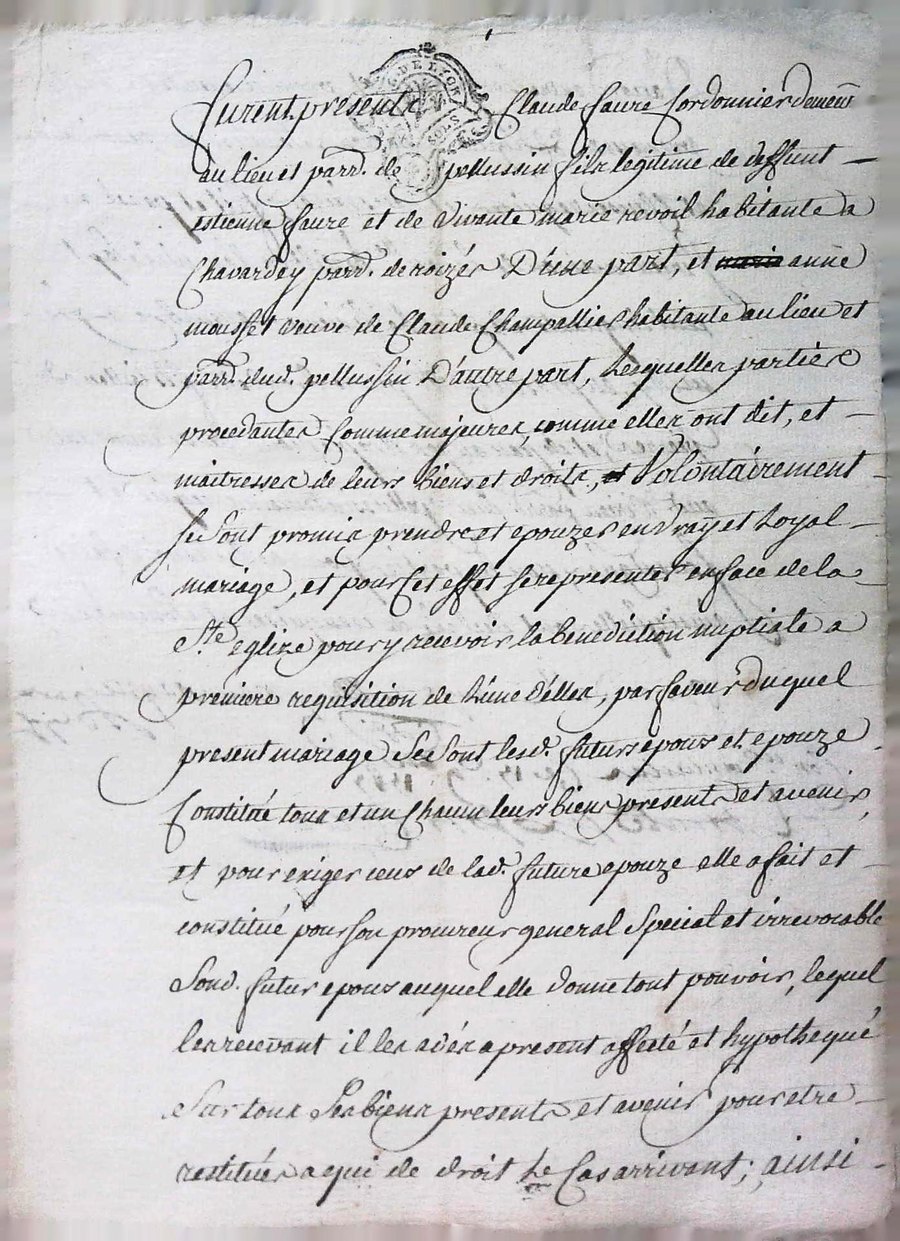 GEN. DE LYON
SOLS
furent presents Claude faure Cordonnier demeurt
au lieu et parr. de pellussin fils legitime de deffunt
estienne faure et de vivante marie revoil habitante a
Chavardey parr. de roizés D'une part, et marie anne
mousset veuve de Claude Champallier habitante au lieu et
parr. dud. pellussin D'autre part, Lesquelles parties
procedantes comme majeures, comme elles ont dit, et
maitresses de leurs biens et droits, et volontairement
se sont promis prendre et epouzer en vray et Loyal
mariage, et pour cet effet se representer en face de la
Ste eglize pour y recevoir la benediction nuptiale a
premiere requisition de L'une d'elles, par faveur duquel
present mariage se sont lesd. futurs epoux et epouze
Constitué tous et un Chacun leurs biens presents et avenir,
et pour exiger ceux de lad. future epouze elle a fait et
constitué pour son procureur general special et irrevocable
Sond. futur epoux auquel elle donne tout pouvoir, lequel
les recevant il les a dés a present affecté et hypothequé
Sur tous Ses biens presents et avenir pour etre
restitués a qui de droit Le Cas arrivant; ainsi